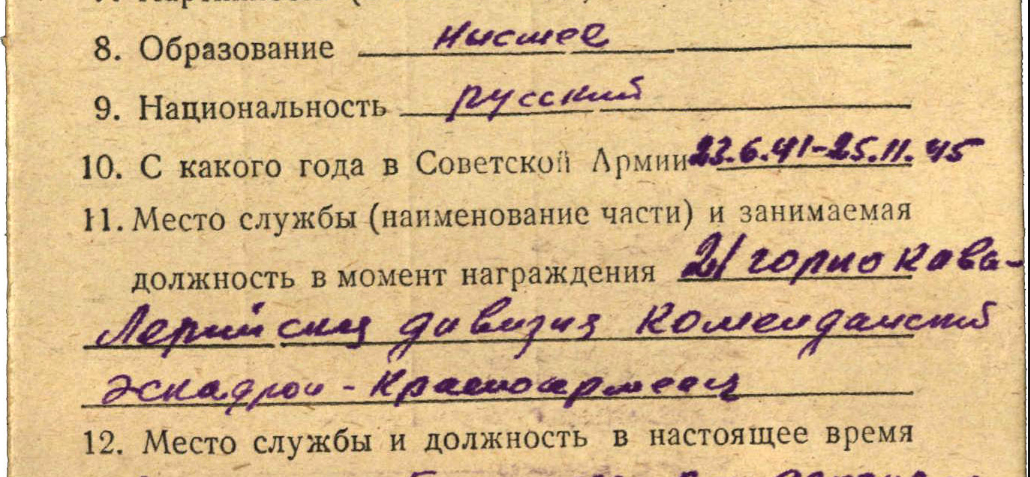 8. Образование низшее
9. Национальность русский
10. С какого года в Советской Армии 23.6.41-25.11.45
11. Место службы (наименование части) и занимаемая
должность в момент награждения 21 горно кава-
лерийская дивизия комендансткий
эскадрон - красноармеец
12. Место службы и должность в настоящее время